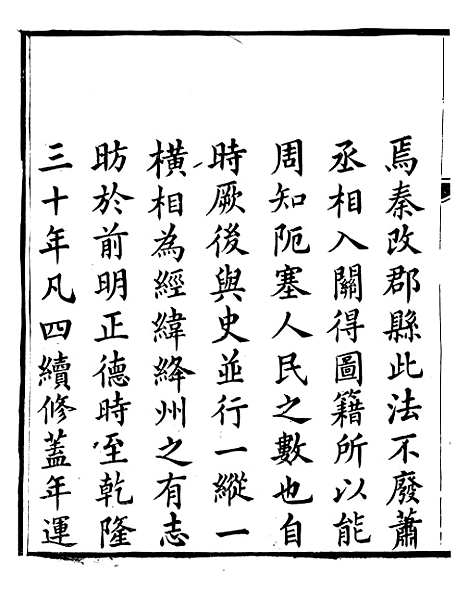 焉秦改郡縣此法不廢蕭
丞相入關得圖籍所以能
周知阨塞人民之數也自
時厥後與史並行一縱一
橫相為經緯絳州之有志
昉於前明正德時至乾隆
三十年凡四續修蓋年運